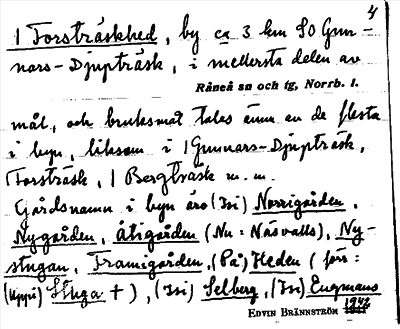 4
1 Forsträskhed, by ca 3 km SO Gun-
nars-Djupträsk, i mellersta delen av
Råneå sn och tg, Norrb. l.
mål, och bruksmål talas ännu av de flesta
i byn, liksom i 1 Gunnars-Djupträsk,
1 Forsträsk, 1 Bergträsk m. m.
Gårdsnamn i byn äro (Isi) Norrigården,
Nygården, Åtigården (Nu: Näsvalls), Ny-
stugan, Framigården, (På) Heden (förr:
(Uppi) Stuga +), (Isi) Selberg, (Isi) Engmans
EDVIN BRÄNNSTRÖM 1942